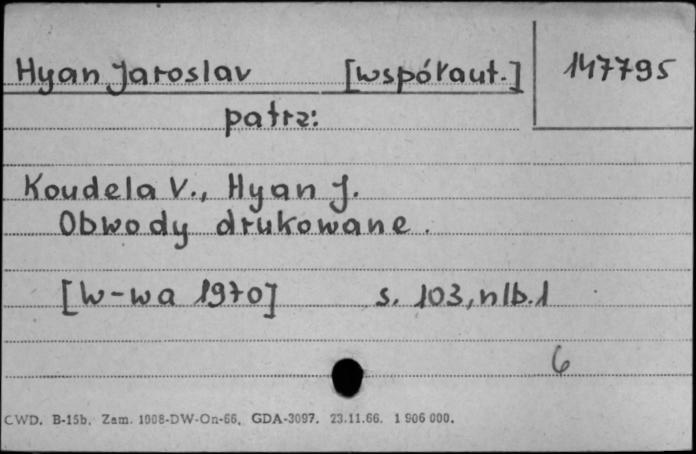 Hyan Jaroslav [współaut.] 147795
patrz:
Koudela V., Hyan J.
Obwody drukowane.
[W-wa 1970] s. 103, nlb. 1
6
CWD. B-15b. Zam. 1008-DW-On-66. GDA-3097. 23.11.66. 1 906 000.